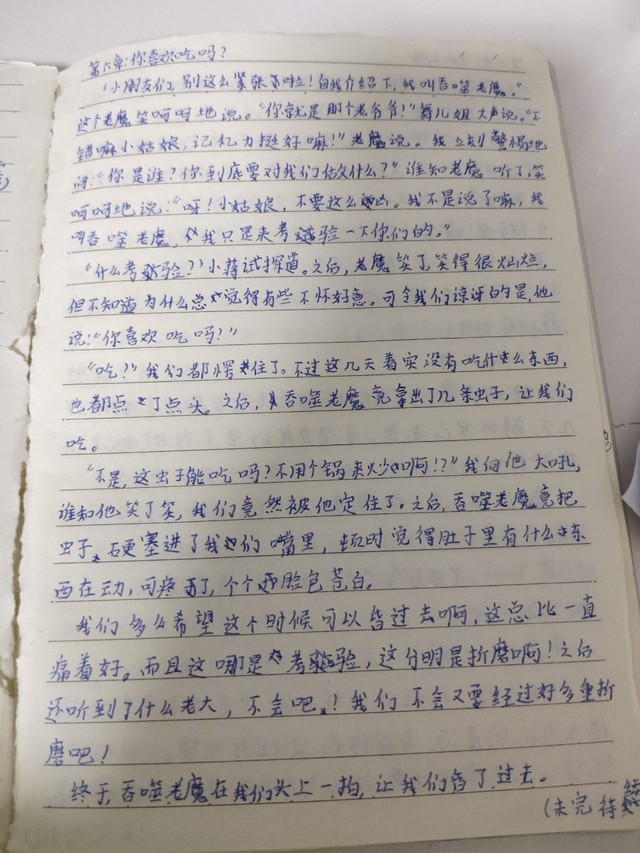 第六章:你喜欢吃吗?
"小朋友们,别这么紧张啦!自我介绍下,我叫吞噬老魔。"
这个老魔笑呵呵地说。"你就是那个老爷爷!"舞儿姐大声说。"不
错嘛小姑娘,记忆力挺好嘛!"老魔说。我立刻警惕地
问:"你是谁?你到底要对我们做什么?"谁知老魔听了,笑
呵呵地说:"呀!小姑娘,不要这么凶。我不是说了嘛,我
叫吞噬老魔,我只是来考验一下你们的。"
"什么考验?"小蒋试探道。之后,老魔笑了,笑得很灿烂,
但不知道为什么总觉得有些不怀好意。可令我们惊讶的是,他
说:"你喜欢吃吗?"
"吃?"我们都愣住了。不过这几天着实没有吃什么东西,
也都点了点头。之后,吞噬老魔竟拿出了几条虫子,让我们
吃。
"不是,这虫子能吃吗?不用个锅来炒啊!?"我向他大吼,
谁知他笑了笑,我们竟然被他定住了。之后,吞噬老魔竟把
虫子硬塞进了我们嘴里,顿时觉得肚子里有什么东
西在动,可疼了,个个脸色苍白。
我们多么希望这个时候可以昏过去啊,这总比一直
痛着好。而且这哪是考验,这分明是折磨啊!之后
还听到了什么老大,不会吧!我们不会又要经过好多重折
磨吧!
终于,吞噬老魔在我们头上一拍,让我们昏了过去。
(未完待续